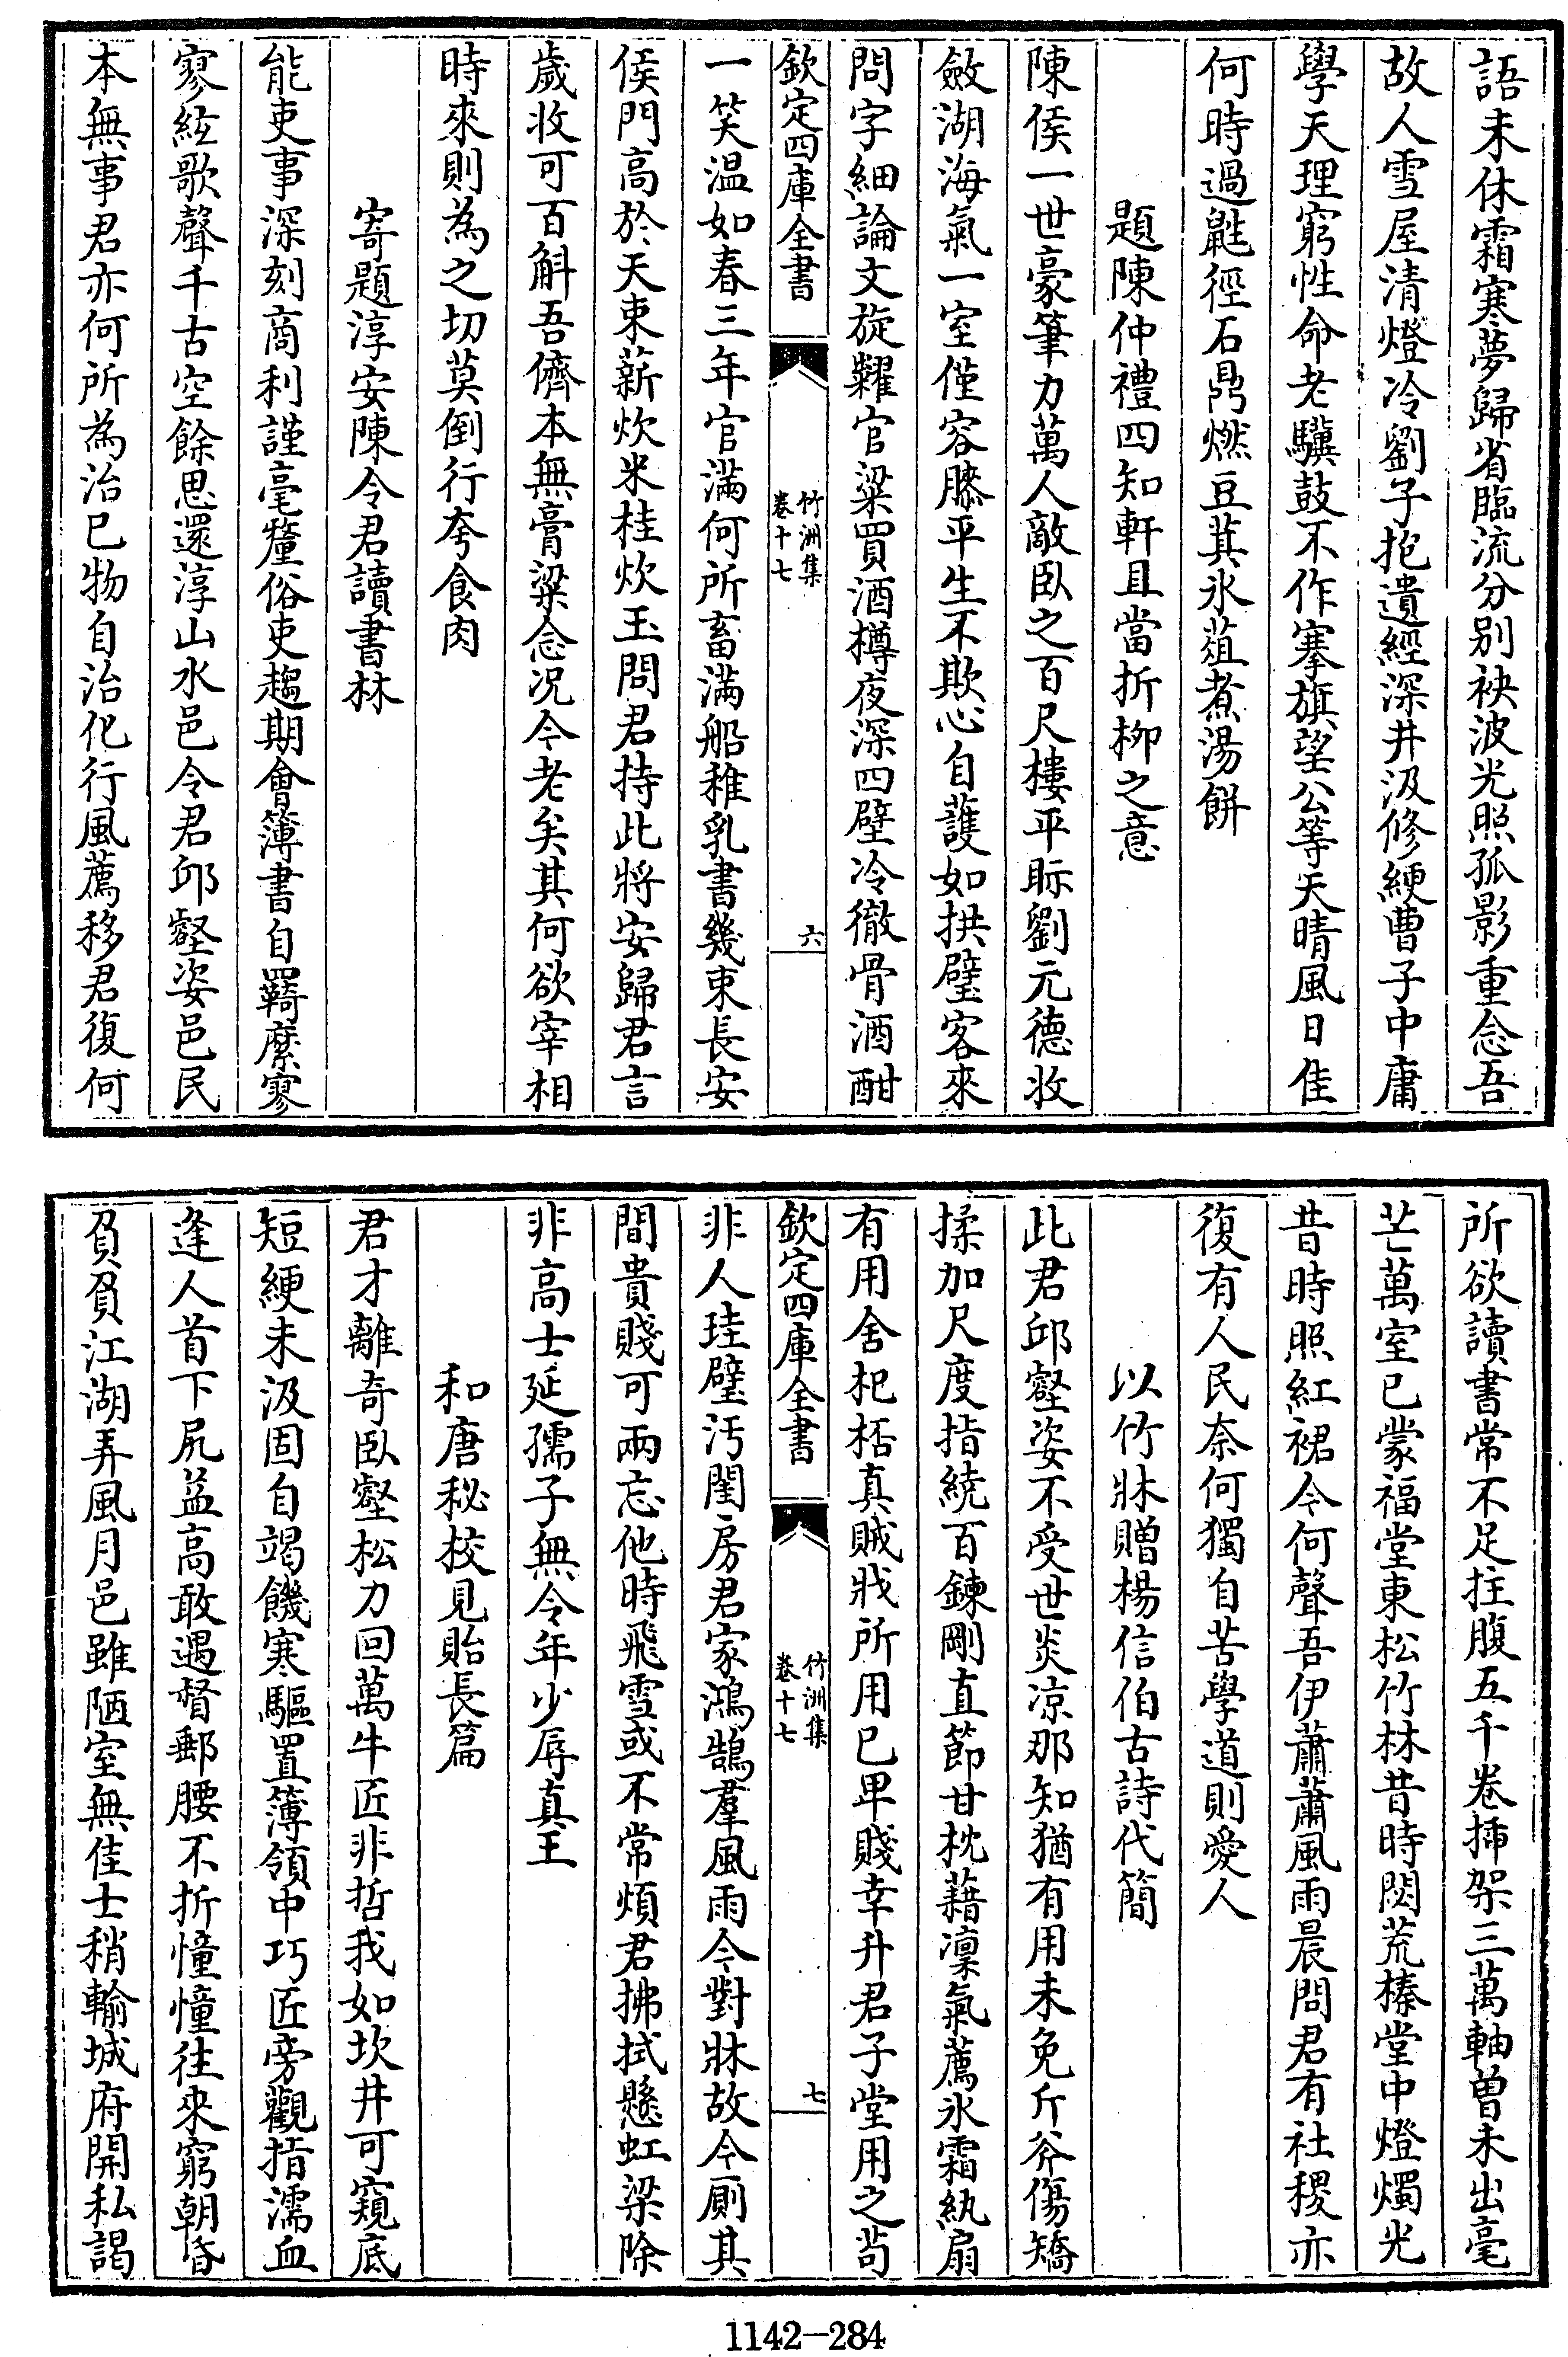 語未休霜寒夢歸省臨流分別袂波光照孤影重念吾
故人雪屋清燈冷劉子抱遺經深井汲修綆曹子中庸
學天理窮性命老驥鼓不作搴旗望公等天晴風日佳
何時過鼪徑石鼎燃豆萁氷葅煮湯餅
題陳仲禮四知軒且當折柳之意
陳侯一世豪筆力萬人敵臥之百尺樓平眎劉元德收
斂湖海氣一室僅容膝平生不欺心自護如拱璧客來
問字細論文旋糶官粱買酒樽夜深四壁冷徹骨酒酣
欽定四庫全書
竹洲集
卷十七
六
一笑温如春三年官滿何所畜滿船稚乳書幾束長安
侯門高於天束薪炊米桂炊玉問君持此將安歸君言
歲收可百斛吾儕本無膏粱念况今老矣其何欲宰相
時來則為之切莫倒行夸食肉
寄題淳安陳令君讀書林
能吏事深刻商利謹毫釐俗吏趨期會簿書自羇縻寥
寥絃歌聲千古空餘思還淳山水邑令君邱壑姿邑民
本無事君亦何所為治已物自治化行風薦移君復何
所欲讀書常不足拄腹五千卷揷架三萬軸曽未出毫
芒萬室已蒙福堂東松竹林昔時閟荒榛堂中燈燭光
昔時照紅裙今何聲吾伊蕭蕭風雨晨問君有社稷亦
復有人民奈何獨自苦學道則愛人
以竹牀贈楊信伯古詩代簡
此君邱壑姿不受世炎凉那知猶有用未免斤斧傷矯
揉加尺度指繞百鍊剛直節甘枕藉凜氣薦氷霜紈扇
有用舍杞桮真賊戕所用已卑賤幸升君子堂用之苟
欽定四庫全書
竹洲集
卷十七
七
非人珪璧汚閨房君家鴻鵠羣風雨今對牀故令厠其
間貴賤可兩忘他時飛雪或不常煩君拂拭懸虹梁除
非高士延孺子無令年少辱真王
和唐秘校見貽長篇
君才離奇臥壑松力回萬牛匠非哲我如坎井可窺底
短綆未汲固自竭饑寒驅置簿領中巧匠旁觀指濡血
逢人首下尻益高敢遇督郵腰不折憧憧徃來窮朝昏
負負江湖弄風月邑雖陋室無佳士稍輸城府開私謁
1142-284